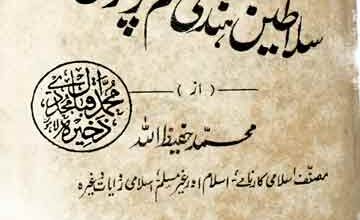 سلاطین ہندی علم پروری
(از)
محمد حفیظ اللہ
محمد اقبال مجددی
ذخیرہ
مصنف اسلامی کارنامے، اسلام اور غیر مسلم، اسلامی روایات وغیرہ